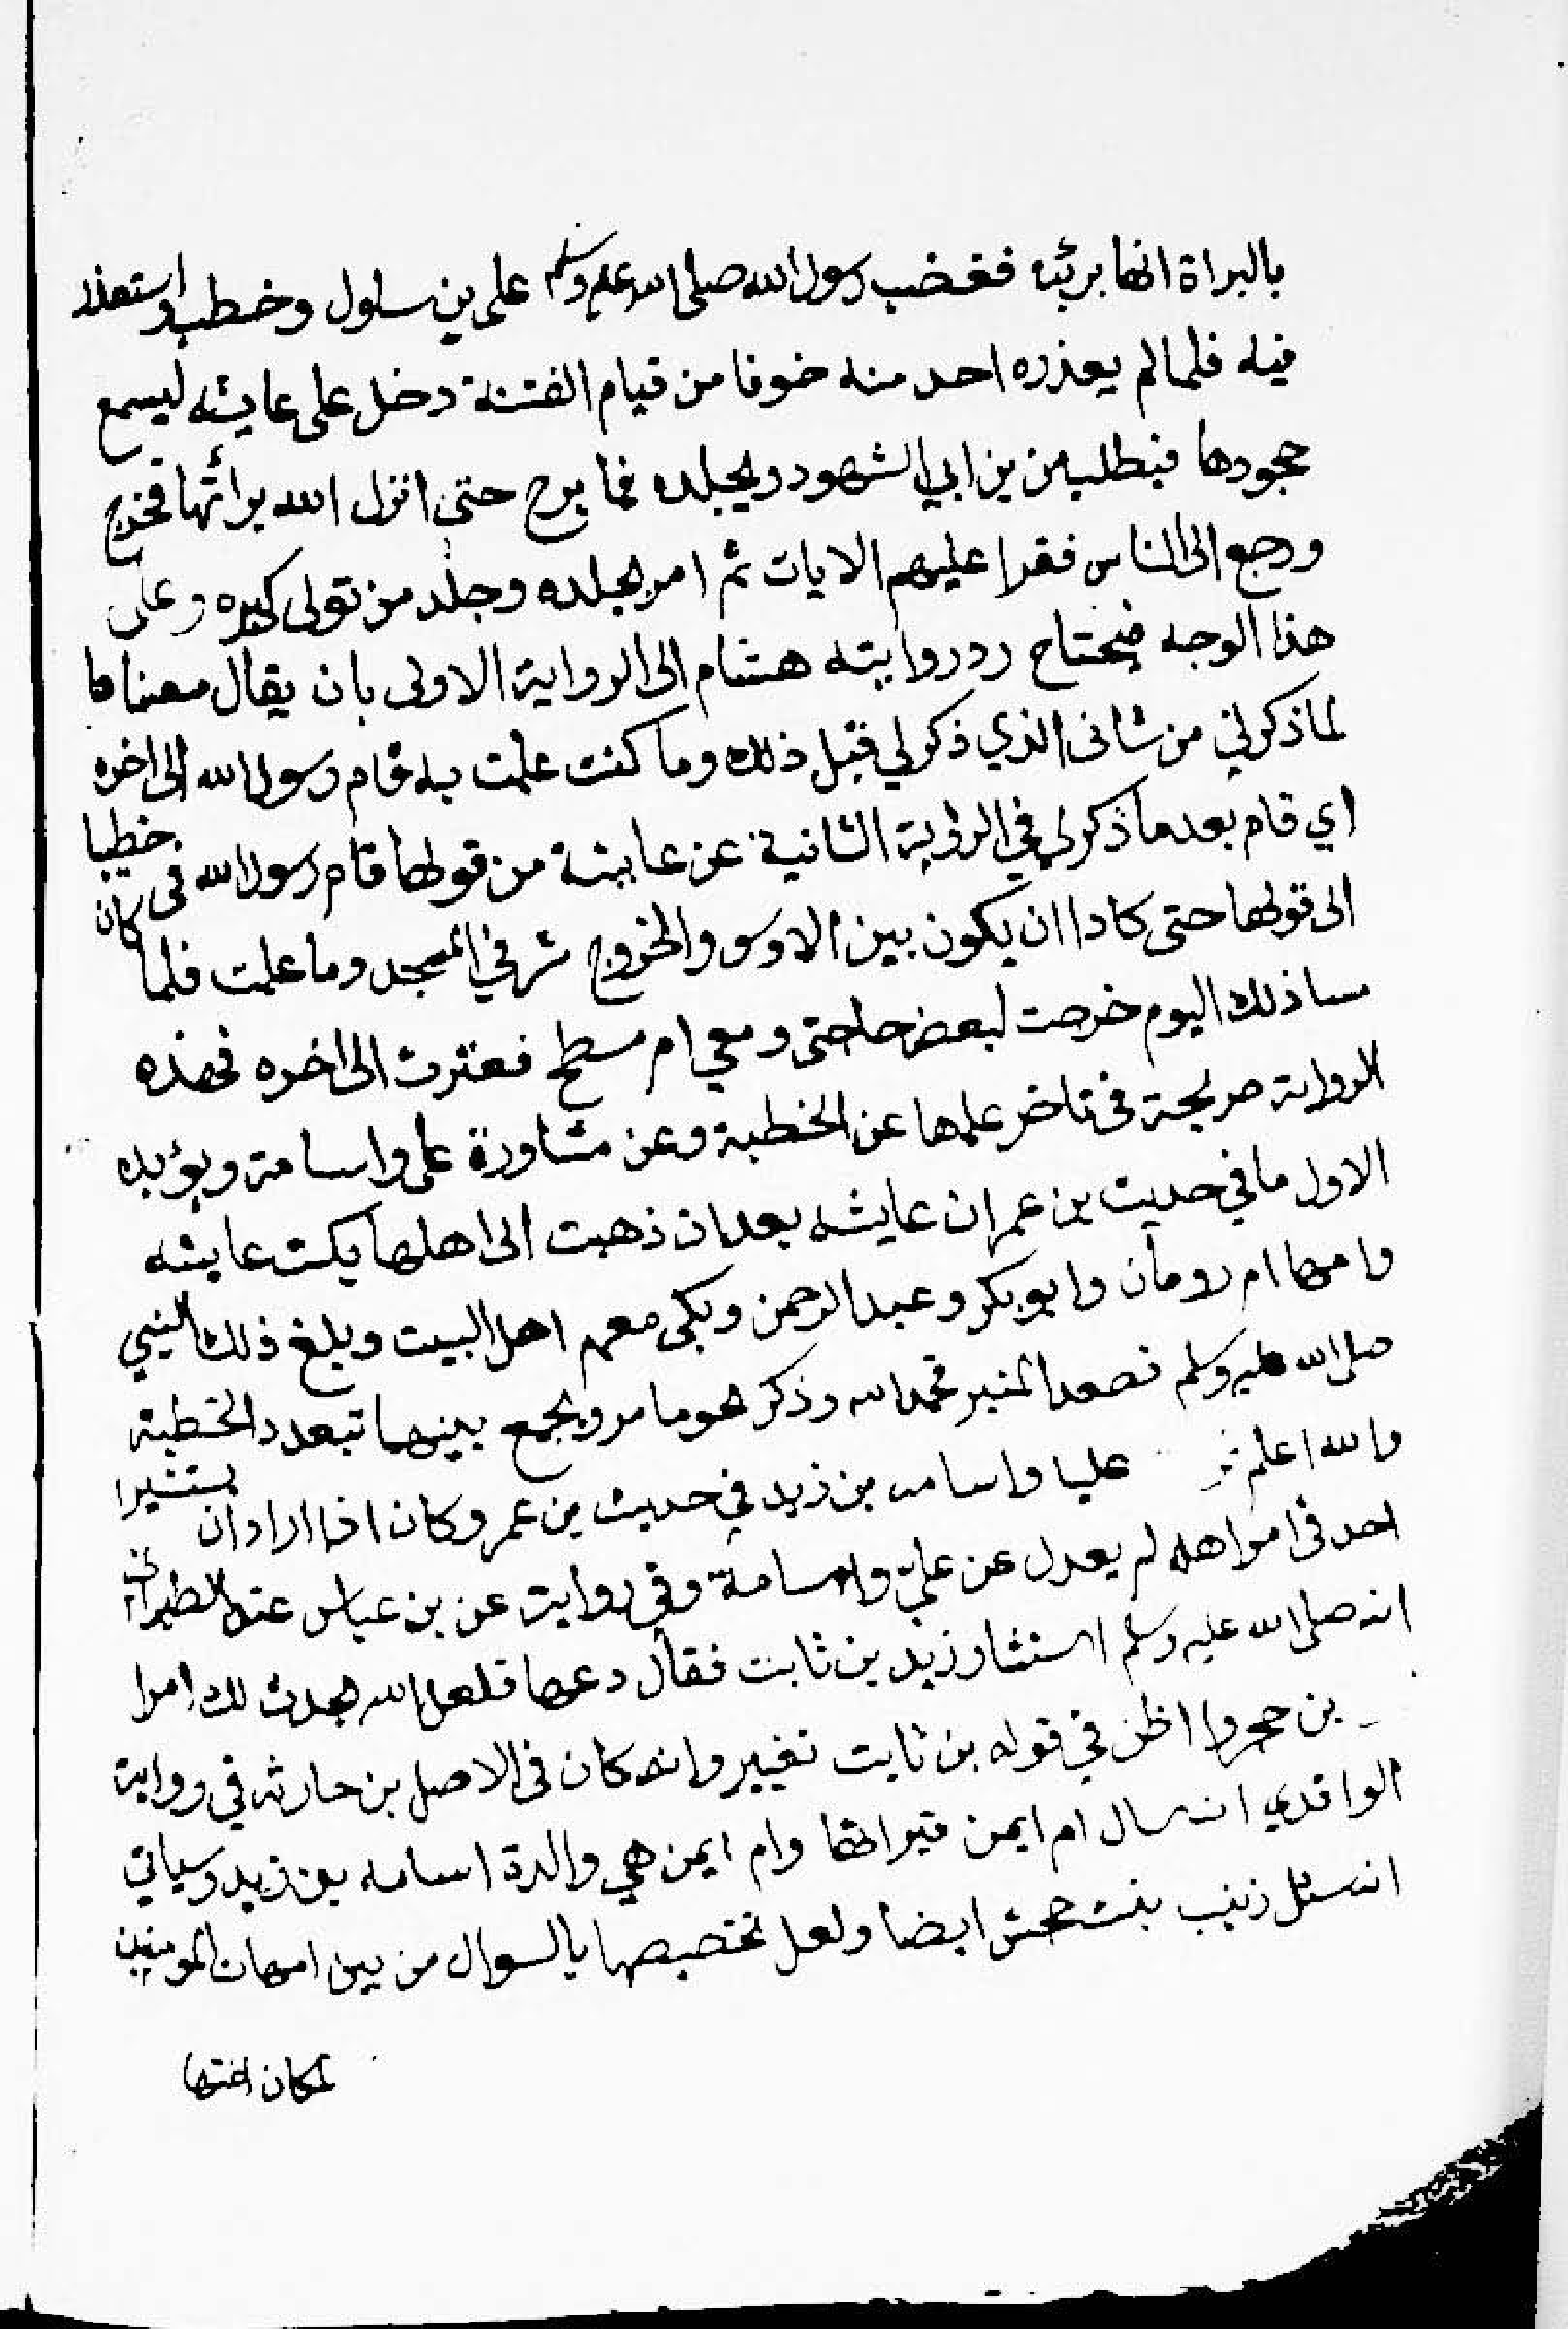 بالبراة انها بريئه فغضب رسول الله صلى الله عليه وسلم على بن سلول وخطب واستعذر
فيه فلما لم يعذره احد منه خوفا من قيام الفتنة دخل على عايشه ليسمع
حجودها فيطلب من بن ابي الشهود ويجلده فما برح حتى انزل الله برائتها فخرج
ورجع الى الناس فقرا عليهم الايات ثم امر بجلده وجلد من تولى كبره وعلى
هذا الوجه فيحتاج رد روايته هشام الى الرواية الاولى بان يقال معناها
لما ذكر لي من شانى الذي ذكر لي قبل ذلك وما كنت علمت به قام رسول الله الى اخره
اي قام بعد ما ذكر لي في الرواية الثانية عن عايشة من قولها قام رسول الله في خطيبا
الى قولها حتى كادا ان يكون بين الاوس والخزرج شر في المسجد وما علمت فلما كان
مسا ذلك اليوم خرجت لبعض حاجتى ومعي ام مسطح فعثرت الى اخره فهذه
الرواية صريحة فى تاخر علمها عن الخطبة وعن مشاورة على واسامة ويؤيده
الاول ما في حديث بن عمر ان عايشه بعد ان ذهبت الى اهلها بكت عايشه
وامها ام رومان وابو بكر وعبد الرحمن وبكى معهم اهل البيت وبلغ ذلك النبي
صلى الله عليه وسلم فصعد المنبر فحمد الله وذكر نحو ما مر ويجمع بينهما تبعدد الخطبة
والله اعلم عليا واسامه بن زيد في حديث بن عمر وكان اذا اراد ان يستشير
احد فى امر اهله لم يعدل عن علي واسامة وفي رواية عن بن عباس عند الطبراني
انه صلى الله عليه وسلم استشار زيد بن ثابت فقال دعها فلعل الله يحدث لك امرا
بن حجر وا اظن في قوله بن ثابت تغيير وانه كان فى الاصل بن حارثه في ورواية
الواقدي انه سال ام ايمن فبراتها وام ايمن هي والدة اسامه بن زيد وسياتي
انه سئل زينب بنت جحش ايضا ولعل تخصيصها بالسوال من بين امهات المومنين
لمكان اختها